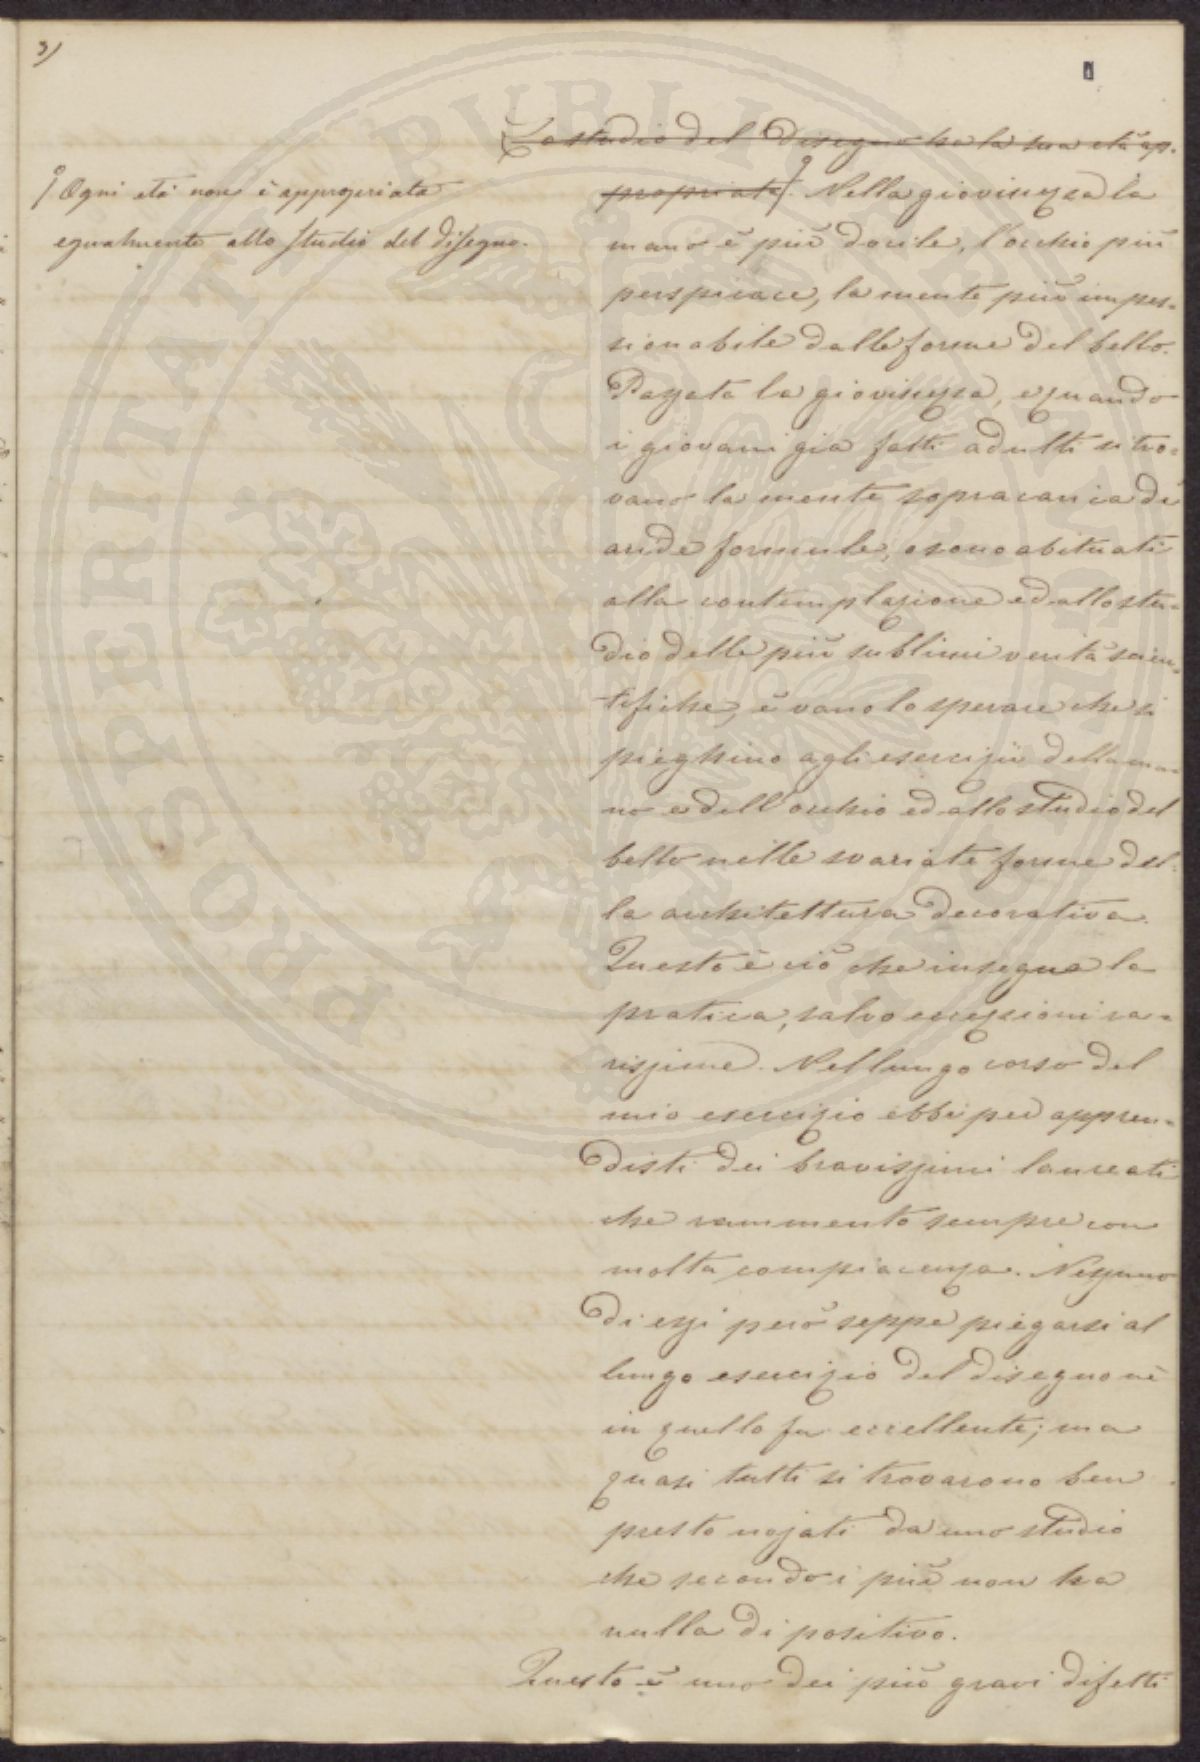 3)
Lo studio del Disegno ha la sua età ap-
propriata. Nella giovinezza la
Ogni età non è appropriata
egualmente allo studio del disegno.
mano è più docile, l'occhio più
perspicace, la mente più impres-
sionabile dalle forme del bello.
Passata la giovinezza, e quando
i giovani già fatti adulti si tro-
vano la mente sopracarica di
aride formule, o sono abituati
alla contemplazione ed allo stu-
dio delle più sublimi verità scien-
tifiche, è vano lo sperare che si
pieghino agli esercizii della ma-
no e dell'occhio ed allo studio del
bello nelle svariate forme del-
la architettura decorativa.
Questo è ciò che insegna la
pratica, salvo eccezioni ra-
rissime. Nel lungo corso del
mio esercizio ebbi per appren-
disti dei bravissimi laureati
che rammento sempre con
molta compiacenza. Nessuno
di essi però seppe piegarsi al
lungo esercizio del disegno nè
in quello fu eccellente; ma
quasi tutti si trovarono ben
presto nojati da uno studio
che secondo i più non ha
nulla di positivo.
Questo è uno dei più gravi difetti
PROSPERITATI PUBLICAE AUGENDAE